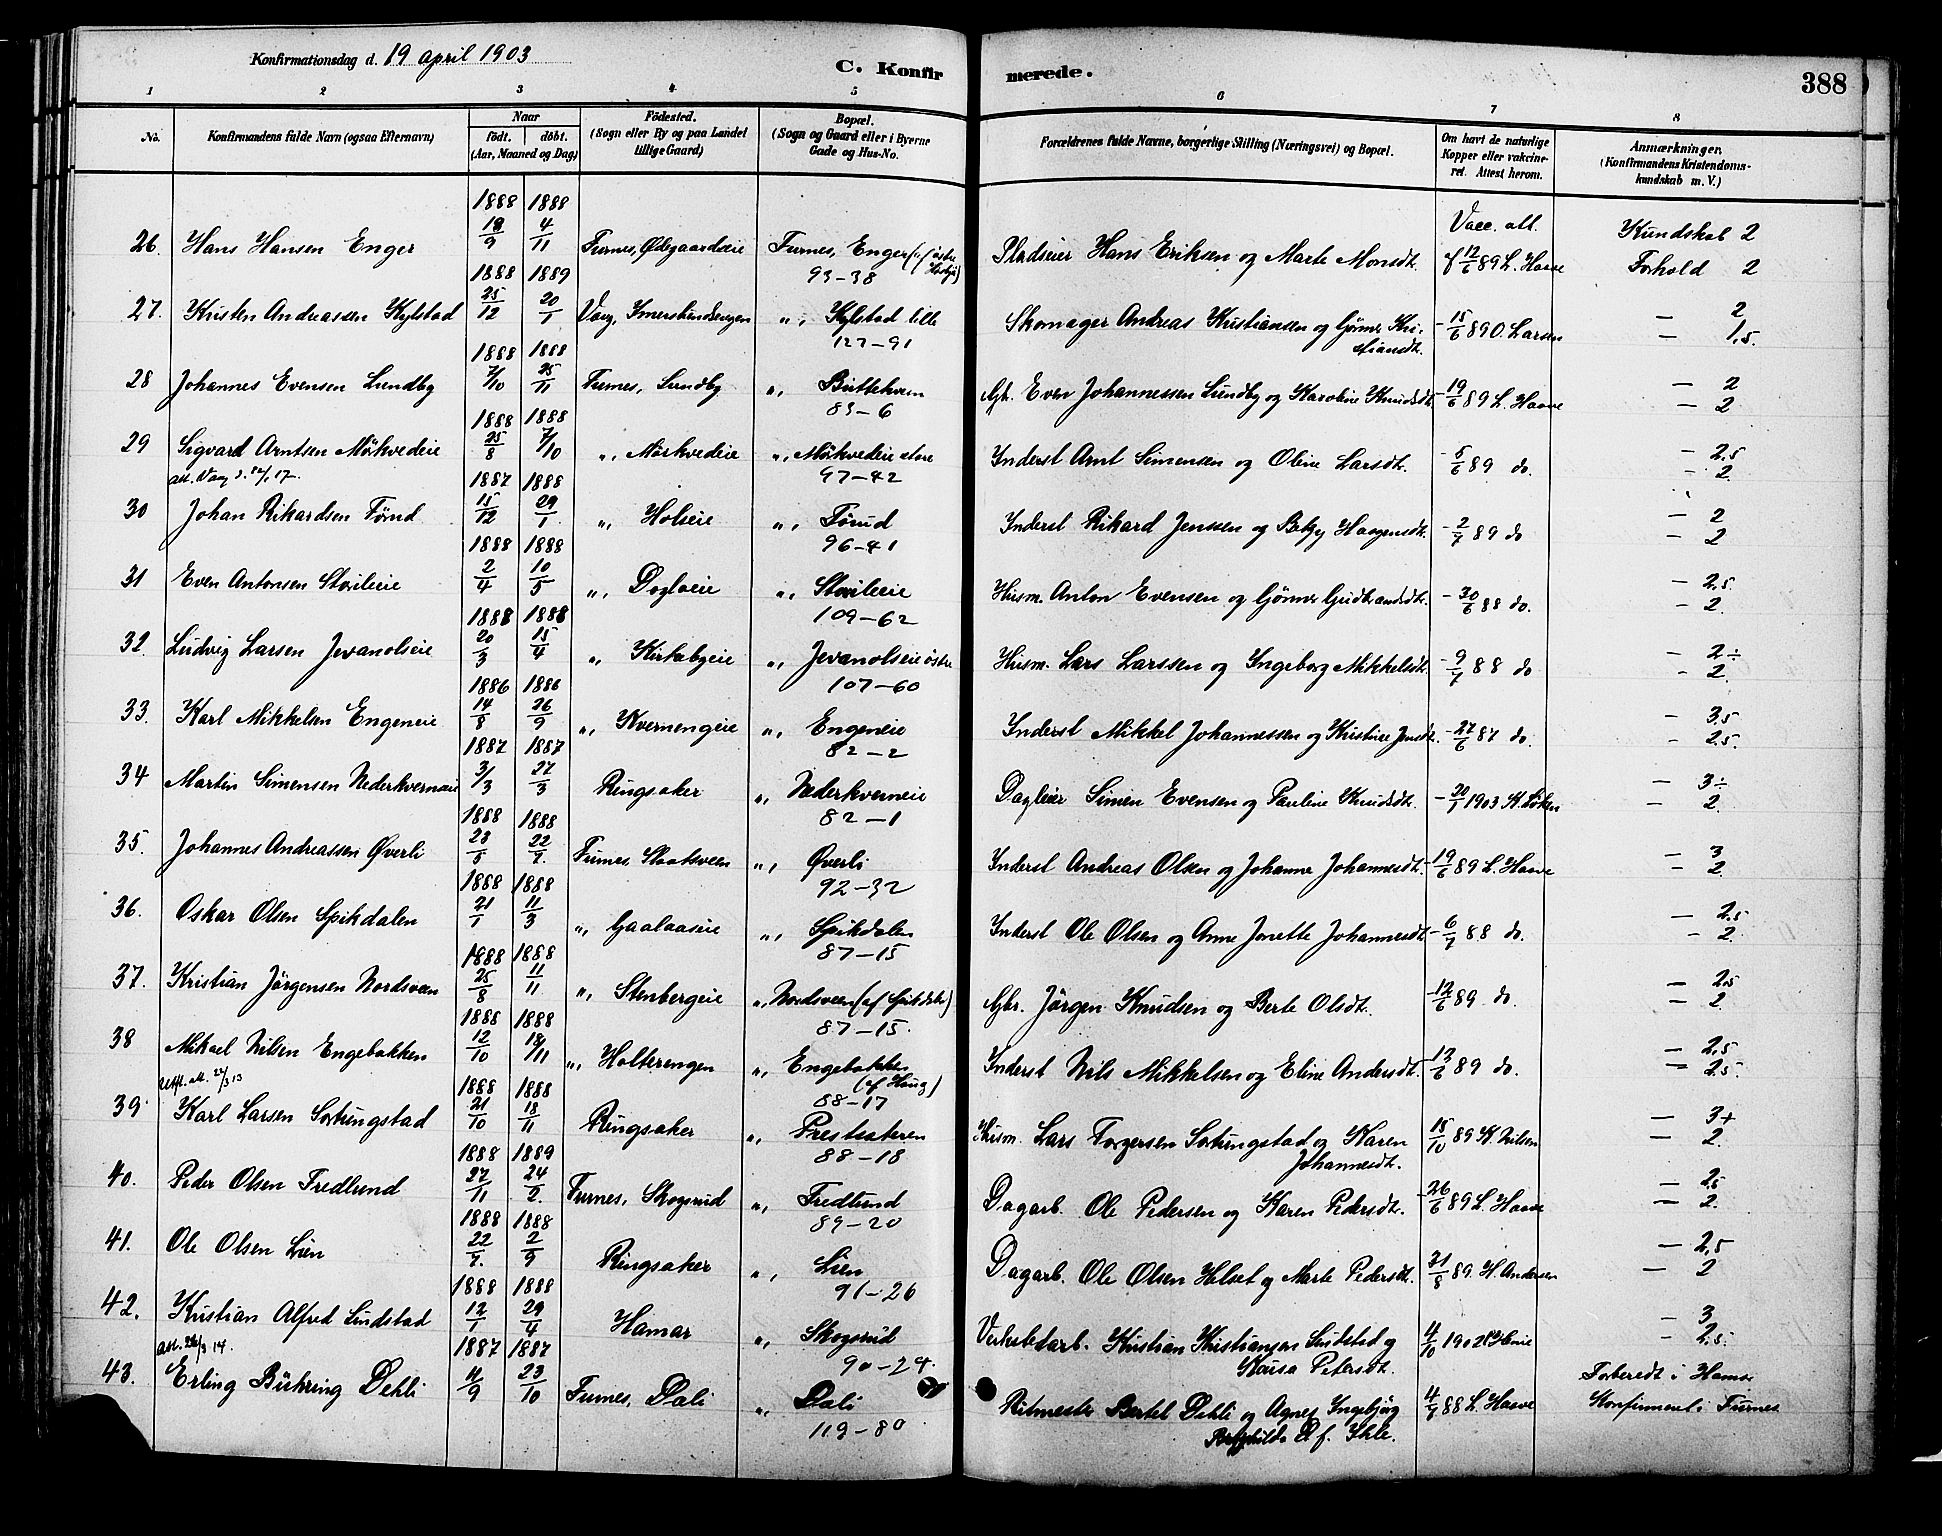 Konfirmationsdag d. 19 april 1903
C. Konfirmerede.
388
1 2 3 4 5 6 7 8
No. Konfirmandens fulde Navn (ogsaa Efternavn) Naar födt. döbt. (Aar, Maaned og Dag) Födested. (Sogn eller By og paa Landet tillige Gaard) Bopæl. (Sogn og Gaard eller i Byerne Gade og Hus-No. Forældrenes fulde Navne, borgerlige Stilling (Næringsvei) og Bopæl. Om havt de naturlige Kopper eller vakcineret. Attest herom. Anmærkninger. (Konfirmandens Kristendomskundskab m. V.)
1888 1888 Vacc. att.
26. Hans Hansen Enger 19/9 4/11 Furnes, Ødegaardseie Furnes, Enger (af östre 93-38 Pladseier Hans Eriksen og Marte Monsdt. 12/6 89 L. Haave Kundskab 2 Forhold 2
1888 1889
27. Kristen Andreassen Kylstad 25/12 20/1 Vang, Imerslundengen „ Kylstad lille 127-91 Skomager Andreas Kristiansen og Gjörner Kristiansdt. 15/6 89 O. Larsen — 2 — 1,5.
1888 1888
28 Johannes Evensen Lundby 7/10 25/11 Furnes, Lundby „ Buttekvern 83-6 Gb. Even Johannessen Lundby og Karoline Knudsdt. 19/6 89 L. Haave — 2 — 2
1888 1888
29 Sigvard Arntsen Mörkvedeie 25/8 7/10 „ Mörkvedeie „ Mörkvedeie store 97-42 Inderst Arnt Simensen og Oline Larsdt. 5/6 89 do. — 2,5 — 2.
1887 1888
30 Johan Rikardsen Törud 15/12 29/1 „ Holseie „ Törud 96-41 Inderst Rikard Jenssen og Betzy Haagensdt. 2/7 89 do — 2 — 2
1888 1888
31 Even Antonsen Stavlieie 2/4 10/5 „ Dogloeie „ Stavlieie 109-62 Husm. Anton Evensen og Gjörner Gudbrandsdt. 30/6 88 do. — 2,5 — 2.
1888 1888
32. Ludvig Larsen Jevanolseie 20/3 15/4 „ Kirkebyeie „ Jevanolseie östre 107-60 Husm. Lars Larssen og Ingeborg Mikkelsdt. 9/7 88 do — 2÷ — 2.
1886 1886
33. Karl Mikkelsen Engeneie 14/8 26/9 „ Kvernengeie „ Engeneie 82-2 Inderst Mikkel Johannessen og Kristine Jensdt. 27/6 87 do. — 3,5 — 2,5.
1887 1887
34 Martin Simensen Nederkverneie 3/3 27/3 Ringsaker „ Nederkverneie 82-1 Dagleier Simen Evensen og Pauline Knudsdt. 20/1 1903 K. Löken — 3÷ — 2.
1888 1888
35. Johannes Andreassen Øverli 23/5 22/7. Furnes, Staaksveen „ Øverli 92-32 Inderst Andreas Olsen og Johanne Johannesdt. 19/6 89 L. Haave — 3 — 2.
1888 1888
36. Oskar Olsen Spikdalen 21/1 11/3 „ Gaalaaseie „ Spikdalen 87-15 Inderst Ole Olsen og Anne Jonette Johannesdt. 6/7 88 do. — 2,5 — 2.
1888 1888
37. Kristian Jörgensen Nordsveen 25/8 11/11 „ Stenbergeie „ Nordsveen (af Spikdalen) 87-15. Gbr. Jörgen Knudsen og Berte Olsdt. 12/6 89 do. — 2,5 — 2
1888 1888
38 Mikael Nilsen Engebakken 12/10 18/11 „ Holterengen „ Engebakken (af Haug) 88-17 Inderst Nils Mikkelsen og Eline Andersdt. 12/6 89 do. — 2,5 — 2,5.
1888 1888
39. Karl Larsen Sortungstad 21/10 18/11 Ringsaker „ Prestsæteren 88-18 Husm. Lars Torgersen Sortungstad og Karen Johannesdt. 15/10 89 K. Nilsen — 3+ — 2.
1888 1889
40. Peder Olsen Fredlund 27/11 24/2. Furnes, Skogsrud „ Fredlund 89-20 Dagarb. Ole Pedersen og Karen Pedersdt. 26/6 89 L. Haave — 2,5 — 2.
1888 1888
41. Ole Olsen Lien 22/7. 2/9 Ringsaker „ Lien 91-26 Dagarb. Ole Olsen Helset og Marte Pedersdt. 31/8 89. H. Andersen — 2,5 — 2
1888 1888
42. Kristian Alfred Lindstad 12/1 29/4 Hamar „ Skogsrud 90-24. Verkstedarb. Kristian Kristiansen Lindstad og Kaisa Petersdt. 4/10 1902 — 3 — 2,5.
1887 1887
43. Erling Bühring Dehli 11/9 23/10 Furnes, Dali „ Dali 119-80 Ritmester Bertel Dehli og Agnes Ingebjörg Ragnhilda D. f. Ihle. 4/7 88 L. Haave Forberedt i Hamar Konfirmeret i Furnes